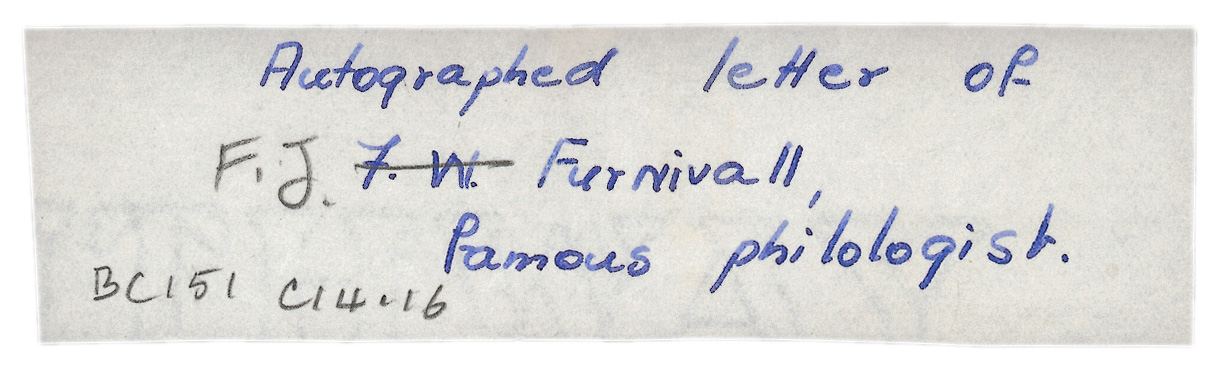 Autographed letter of
F.J. F. W. Furnivall,
famous philologist.
BC151 C14.16